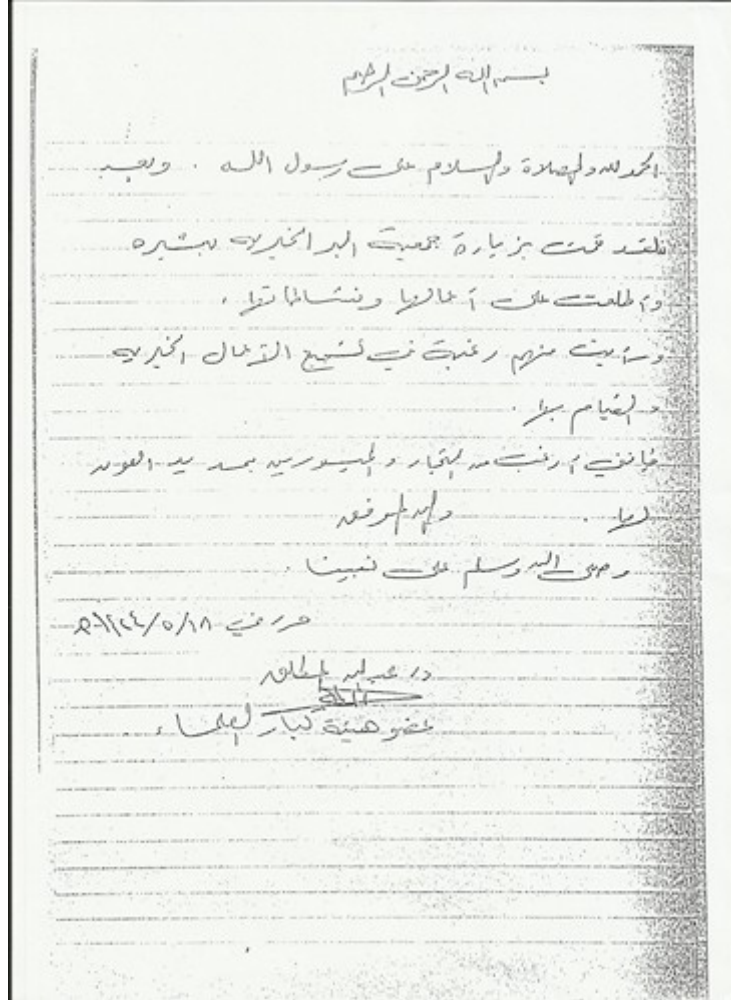 بسم الله الرحمن الرحيم
الحمد لله والصلاة والسلام على رسول الله . وبعد
فلقد قمت بزيارة جمعية البر الخيرية ببشره
وأطلعت على أعمالها ونشاطاتها .
ورأيت منهم رغبة في تشجيع الأعمال الخيرية
والقيام بها .
فإنني أرغب من التجار والميسورين بمد يد العون
لها . والله الموفق
وصلى الله وسلم على نبينا .
حرر في ١٨/٥/١٤٢٤هـ
د/ عبدالله المطلق
عضو هيئة كبار العلماء